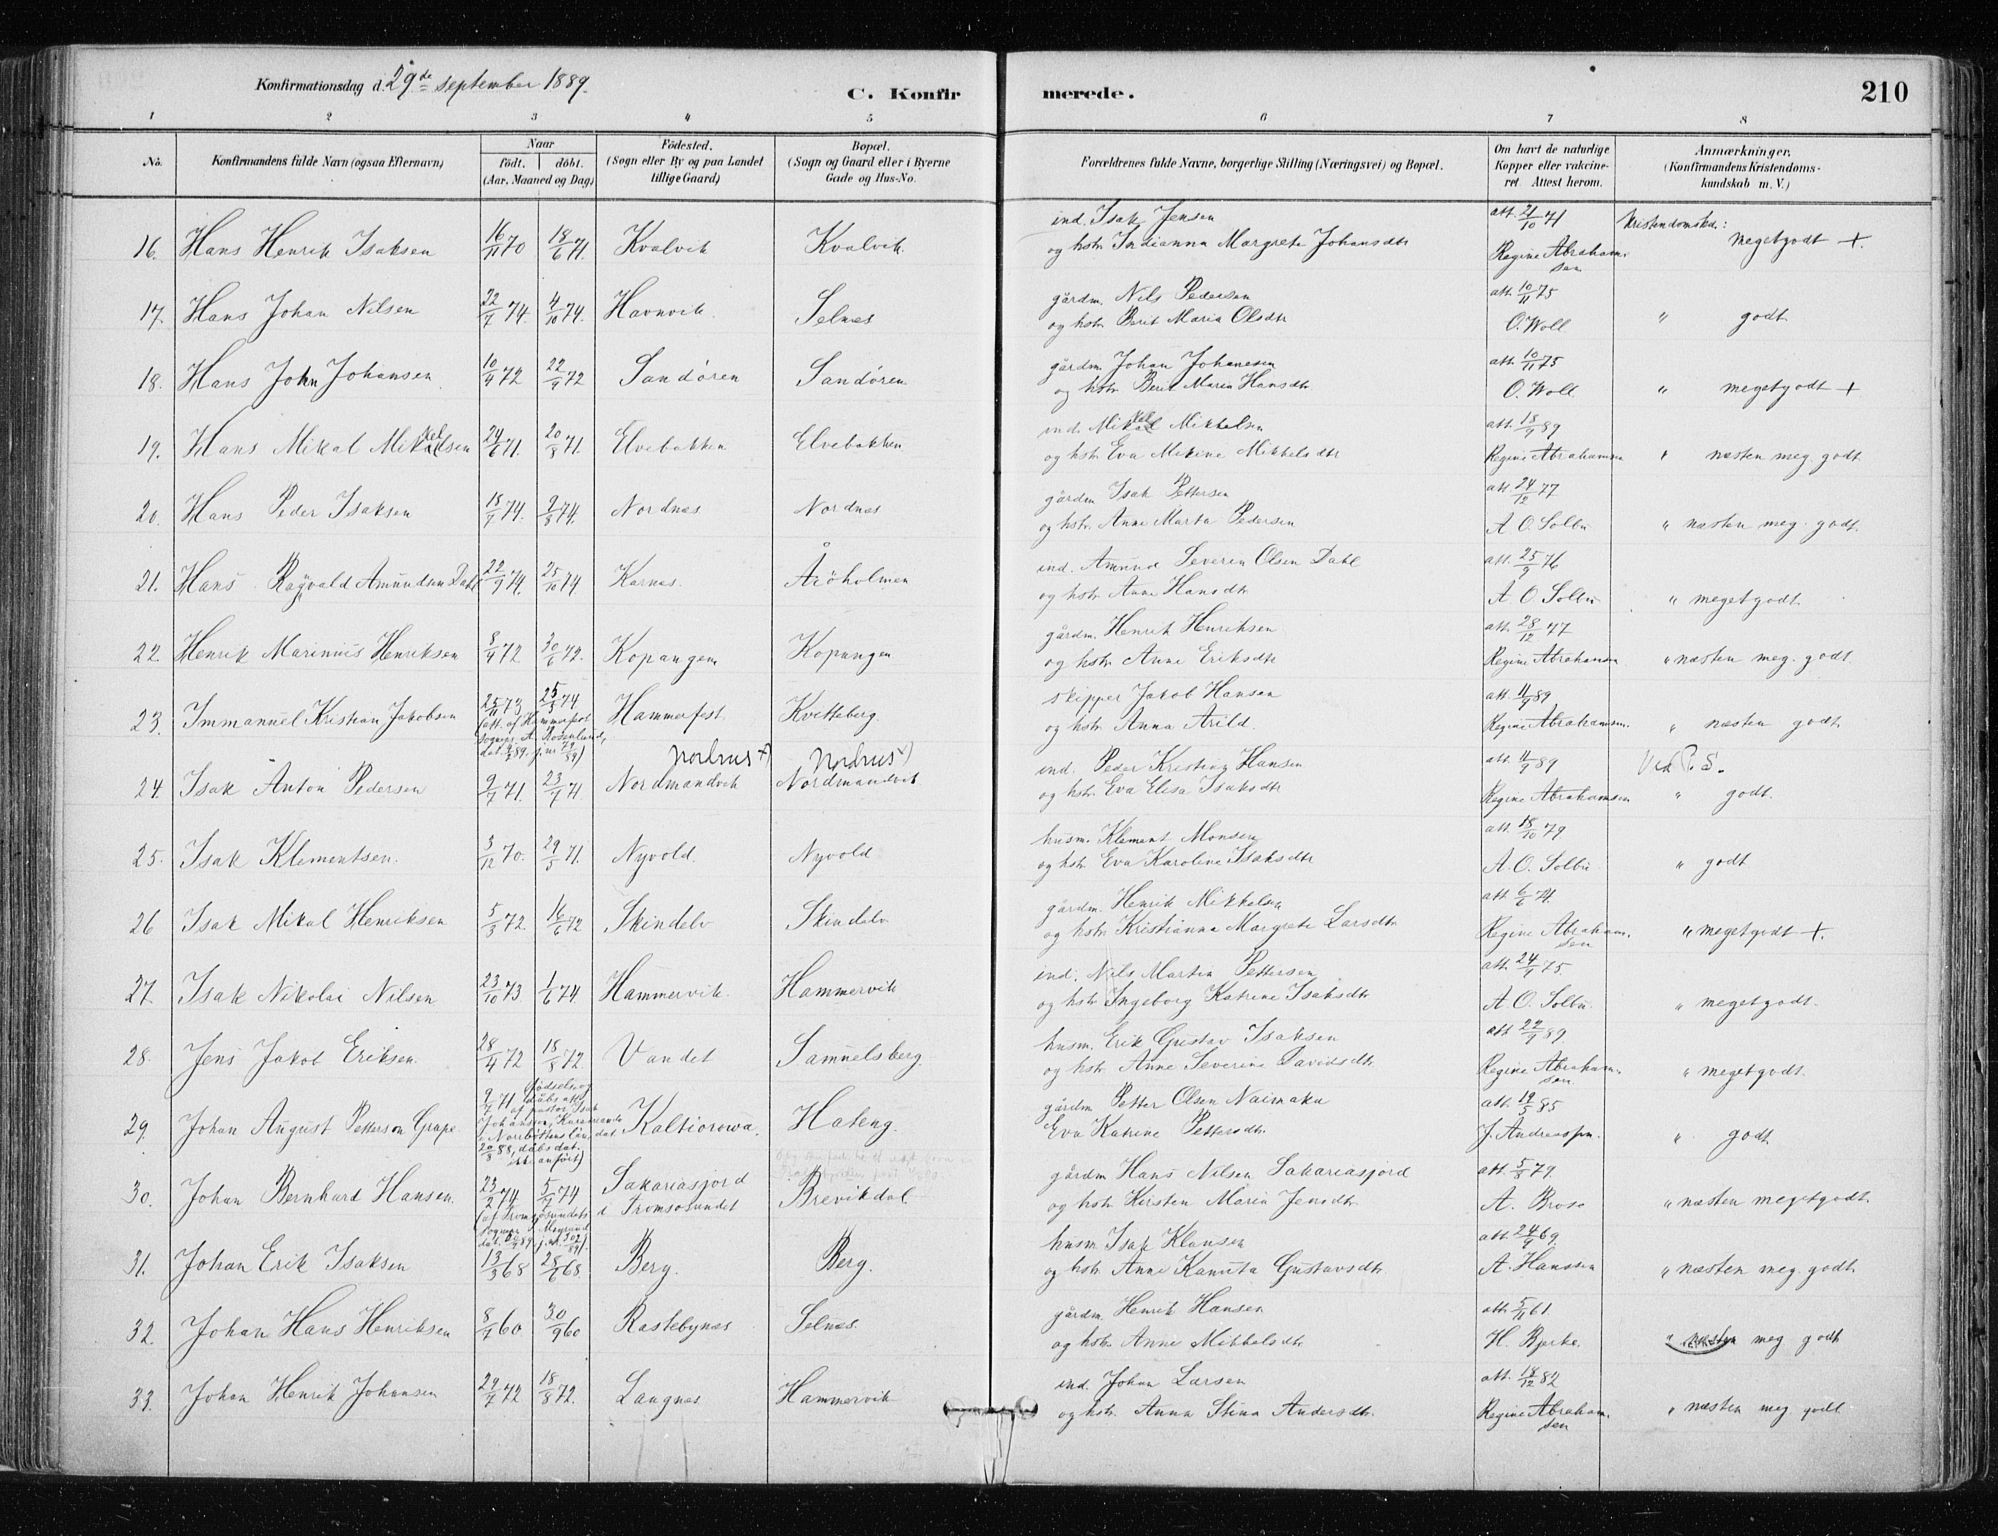 Konfirmationsdag d. 29de september 1889.
C. Konfirmerede.
210
1 2 3 4 5 6 7 8
No. Konfirmandens fulde Navn (ogsaa Efternavn) Naar født. døbt. (Aar, Maaned og Dag) Fødested. (Sogn eller By og paa Landet tillige Gaard) Bopæl. (Sogn og Gaard eller i Byerne Gade og Hus-No. Forældrenes fulde Navne, borgerlige Stilling (Næringsvei) og Bopæl. Om havt de naturlige Kopper eller vakcineret. Attest herom. Anmærkninger. (Konfirmandens Kristendomskundskab m. V.)
16. Hans Henrik Isaksen 16/11 70 18/6 71. Kvalvik Kvalvik. ind. Isak Jensen att. 21/10 71 Kristendomskd.:
og hstr Margrete Johansdtr Regine Abrahamsen megetgodt +.
17. Hans Johan Nilsen 22/7 74. 4/10 74. Havnvik. Selnes gårdm. Nils Pedersen att. 10/11 75
og hstr Berit Maria Olsdtr O. Woll " godt.
18. Hans John Johansen 10/4 72 22/9 72 Sandøren Sandøren gårdm Johan Johannesen att. 10/11 75
og hstr. Berit Maria Hansdtr O. Woll " megetgodt +
19. Hans Mikal Mikkelsen 24/6 71. 20/8 71. Elvebakken Elvebakken ind. Mikkel Mikkelsen att. 13/9 89
og hstr Eva Mikkelsdtr Regine Abrahamsen " næsten meg. godt
20. Hans Peder Isaksen 18/7 74. 2/8 74. Nordnæs Nordnæs gårdm Isak Pettersen att. 24/12 77
og hstr. Anne Marta Pedersen A. O. Solbu " næsten meg. godt.
21. Hans Ragvald Amundsen Dahl 22/9 74. 25/10 74 Karnæs. Årøholmen ind. Amund Severin Olsen Dahl att. 25/9 76
og hstr Anne Hansdtr A. O. Solbu " megetgodt.
22. Henrik Marinuis Henriksen 8/4 72 30/6 72. Kopangen Kopangen gårdm. Henrik Henriksen att. 28/12 77
og hstr Anne Eriksdtr Regine Abrahamsen " næsten meg. godt.
23. Immanuel Kristian Jakobsen 25/11 73 25/5 74 Hammerfest. Kvitteberg. skipper Jakob Hansen att. 11/9 89
(att. af Hammerfest sognepr. A. Rosenlund, og hstr Anna Arild Regine Abrahamsen. " næsten godt.
Nordnæs +) Nordnæs +)
24. Isak Anton Pedersen 9/7 71. 23/7 71 Nordmandvik Nordmandvik ind. Peder Kristian Hansen att. 11/9 89
og hstr Eva Elisa Isaksdtr Regine Abrahamsen " godt.
25. Isak Klementsen. 3/12 70. 29/5 71. Nyvold. Nyvold husm. Klement Monsen att. 18/10 79
og hstr Eva Karoline Isaksdtr A. O. Solbu " godt
26 Isak Mikal Henriksen 5/3 72. 16/6 72 Skindelv Skindelv gårdm. Henrik Mikkelsen att. 6/6 74.
og hstr. Kristianna Margrete Larsdtr. Regine Abrahamsen " megetgodt +.
27. Isak Nikolai Nilsen 23/10 73. 1/6 74. Hammervik. Hammervik ind. Nils Martin Pettersen att. 24/9 75.
og hstr Ingeborg Katrine Isaksdtr. A. O. Solbu. " megetgodt.
28. Jens Jakob Eriksen. 28/4 72 18/8 72 Vandet Samuelsberg. husm. Erik Gustav Isaksen att. 22/9 89.
og hstr Anne Severine Davidsdtr. Regine Abrahamsen. " megetgodt.
29. Johan August Petterson Grape 9/7 71 (fødsels og dåbs att. af pastor Isak Johanson, Karesuando i Norrbottens län, dat. 20/8 88, dåbsdat. ikke anført) Kaltiorowa. Hateng. gårdm Petter Olsen Naimaka att. 19/5 85
Eva Katrine Pettersdtr. J. Andreassen. " godt
30. Johan Bernhard Hansen. 23/2 74 5/7 74 Sakariasjord i Tromsøsundet Brevikdal gårdm Hans Nilsen Sakariasjord att. 5/8 79.
og hstr Kirsten Maria Jensdtr. A. Brose " næsten megetgodt.
31. Johan Erik Isaksen 13/3 68 28/6 68. Berg. Berg. husm Isak Klausen att. 24/9 69
og hstr Anne Kanuta Gustavsdtr A. Hanssen " næsten meg. godt.
32. Johan Hans Henriksen 8/7 60 30/9 60 Rastebynæs Selnæs. gårdm. Henrik Hansen att. 5/11 61.
og hstr Anne Mikkelsdtr. H. Bjerke. " næsten meg godt
33. Johan Henrik Johansen 29/7 72 18/8 72. Langnæs Hammervik ind. Johan Larsen att. 18/12 82
og hstr. Anna Stina Andersdtr. Regine Abrahamsen " næsten meg godt